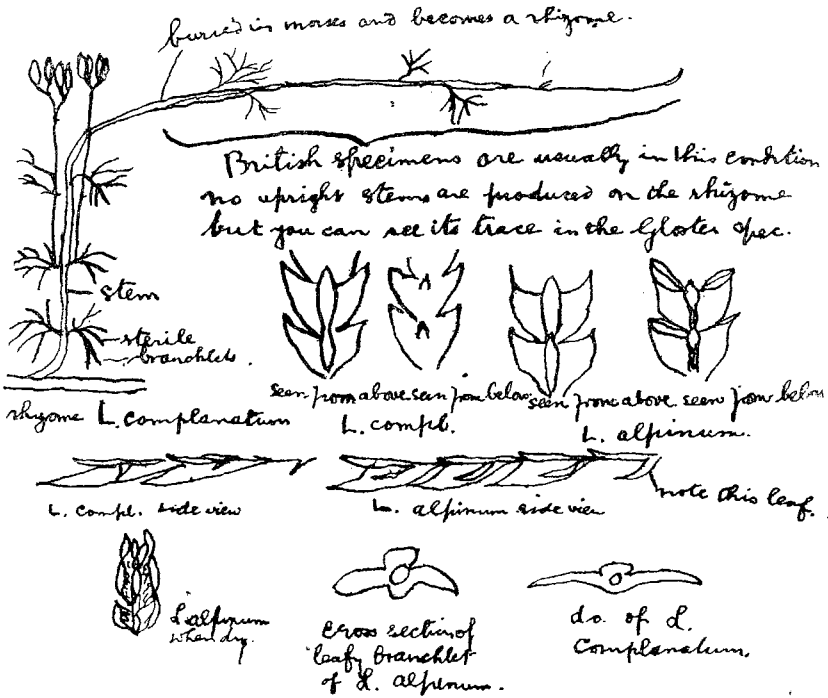 buried in mosses and becomes a rhizome.
British specimens are usually in this condition
no upright stems are produced on the rhizome
but you can see its trace in the Gloster spec.
stem
sterile
branchlets.
rhizome L. complanatum
seen from above seen from below
L. compl.
seen from above seen from below
L. alpinum.
L. compl. side view
L. alpinum side view
note this leaf.
L. alpinum
when dry.
cross section of
leafy branchlet
of L. alpinum.
do. of L.
Complanatum.